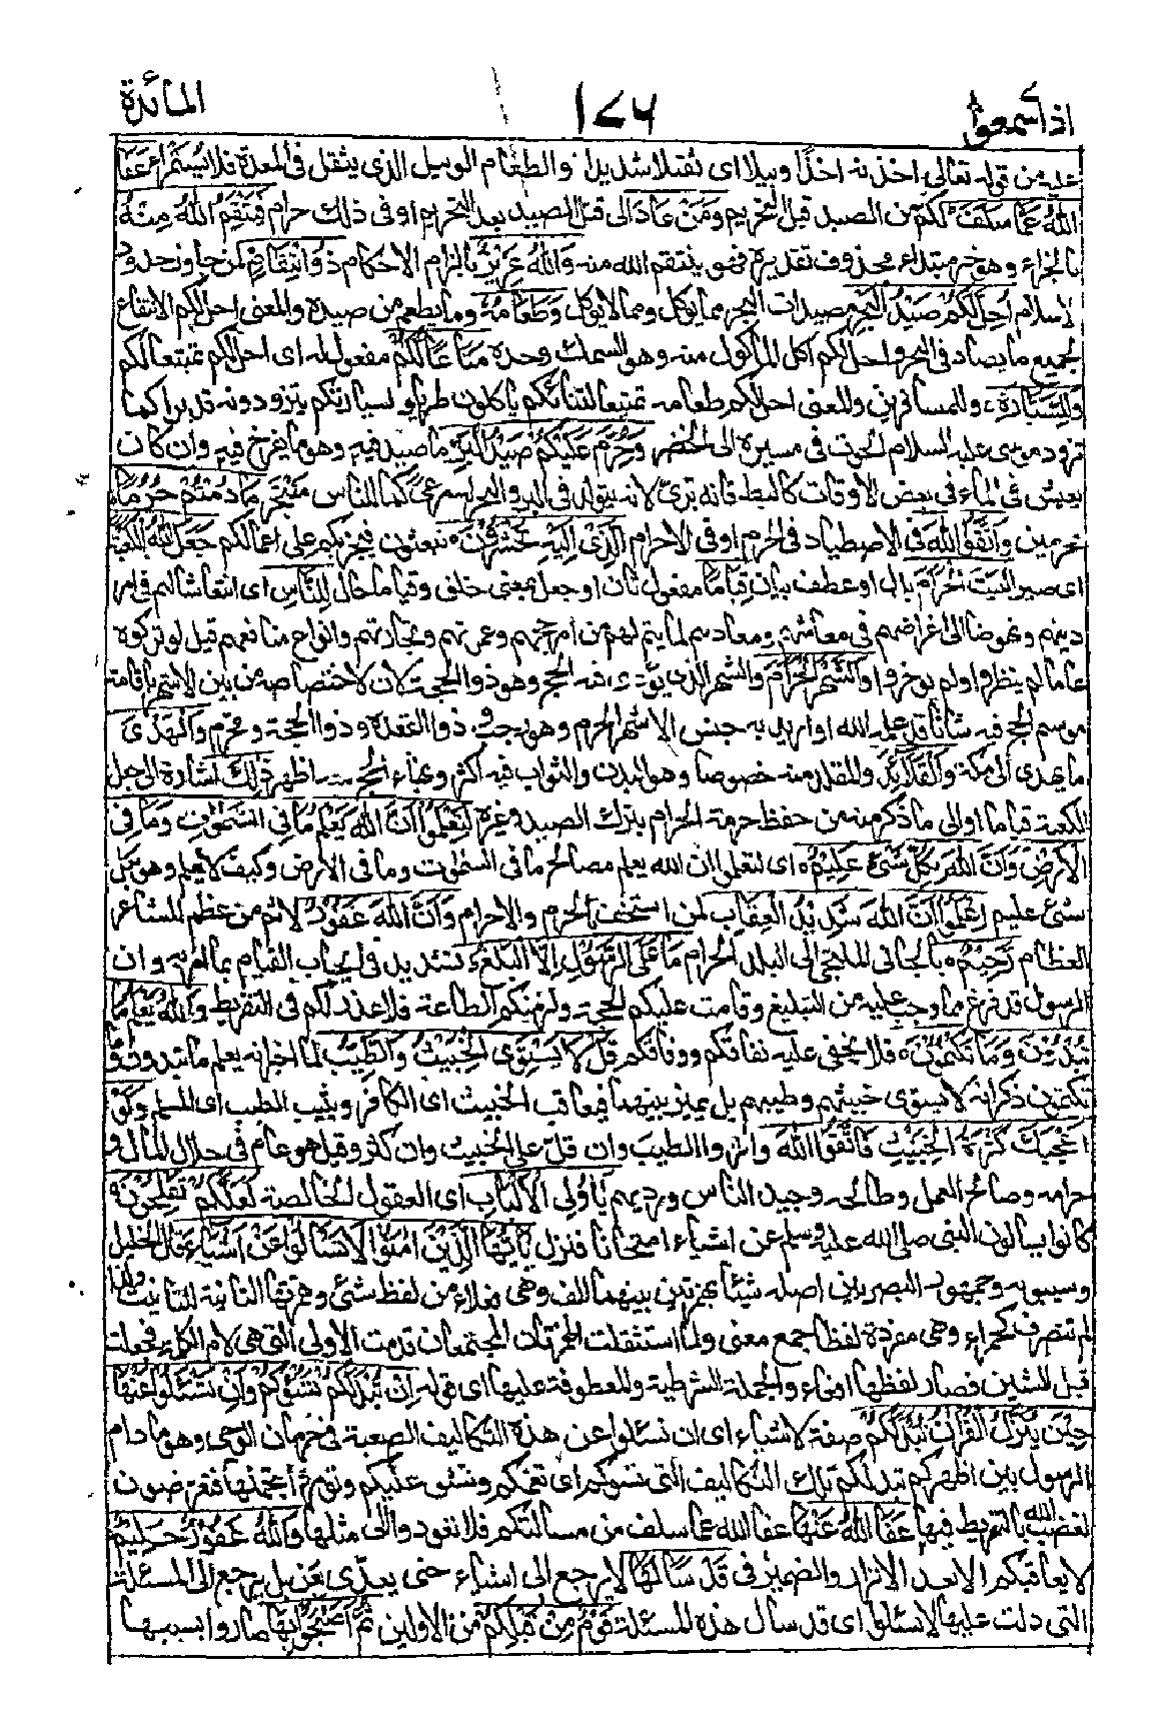 اذا سمعوا ١٧٦ المائدة
عليه من قوله تعالى اخذنه اخذًا وبيلا اى ثقيلا شديدا والطعام الوبيل الذى يثقل فى المعدة فلا يستمرأ عَفَا
اللهُ عَمَّا سَلَفَ لكم من الصيد قبل التحريم وَمَنْ عَادَ الى قتل الصيد بعد التحريم او فى ذلك حرام فَيَنْتَقِمُ اللهُ مِنْهُ
بالجزاء وهو خبر مبتداء محذوف تقديره فهو ينتقم الله منه وَاللهُ عَزِيْزٌ بالزام الاحكام ذُو انْتِقَامٍ لمن جاوز حدود
الاسلام اُحِلَّ لَكُمْ صَيْدُ الْبَحْرِ مصيدات البحر مما يوكل ومما لا يوكل وَطَعَامُهُ وما يطعم من صيده والمعنى احل لكم الانتفاع
بجميع ما يصاد فى البحر واحل لكم اكل الماكول منه وهو السمك وحده مَتَاعًا لَّكُمْ مفعول له اى احل لكم تمتيعا لكم
وَلِلسَّيَّارَةِ وللمسافرين والمعنى احل لكم طعامه تمتيعا لتنائكم ياكلون طريا ولسيارتكم يتزودونه قديرا كما
تزود موسى عليه السلام الحوت فى مسيره الى الخضر وَحُرِّمَ عَلَيْكُمْ صَيْدُ الْبَرِّ ما صيد فيه وهو ما يفرخ فيه وان كان
يعيش فى الماء فى بعض الاوقات كالبط فانه برىّ لانه يتولد فى البر والبحر له مرعى كما للناس متجر مَا دُمْتُمْ حُرُمًا
محرمين وَاتَّقُوا اللهَ فى الاصطياد فى الحرم او فى الاحرام الَّذِىْ اِلَيْهِ تُحْشَرُوْنَ تبعثون فيجزيكم على اعمالكم جَعَلَ اللهُ الْكَعْبَةَ
اى صير الْبَيْتَ الْحَرَامَ بدل او عطف بيان قِيَامًا مفعول ثان او جعل بمعنى خلق وقياما حال لِلنَّاسِ اى انتعاشا لهم فى امر
دينهم ونهوضا الى اغراضهم فى معاشهم ومعادهم لما يتم لهم من امر حجهم وعمرتهم وتجارتهم وانواع منافعهم قيل لو تركوه
عاما لم ينظروا ولم يوخروا وَالشَّهْرَ الْحَرَامَ والشهر الذى يودى فيه الحج وهو ذو الحجة لان لاختصاصه من بين الاشهر باقامة
موسم الحج فيه شانا قد علمه الله او اريد به جنس الاشهر الحرم وهو رجب وذو القعدة وذو الحجة ومحرم وَالْهَدْىَ
ما يهدى الى مكة وَالْقَلَائِدَ والمقلد منه خصوصا وهو البدن والثواب فيه اكثر وبهاء الحج معه اظهر ذٰلِكَ اشارة الى جعل
الكعبة قياما او الى ما ذكر منه من حفظ حرمة الحرام بترك الصيد وغيره لِتَعْلَمُوْا اَنَّ اللهَ يَعْلَمُ مَا فِى السَّمٰوٰتِ وَمَا فِى
الْاَرْضِ وَاَنَّ اللهَ بِكُلِّ شَىْءٍ عَلِيْمٌ اى لتعلموا ان الله يعلم مصالح ما فى السموت وما فى الارض وكيف لا يعلم وهو بكل
شىء عليم اِعْلَمُوْا اَنَّ اللهَ شَدِيْدُ الْعِقَابِ لمن استخف بالحرم والاحرام وَاَنَّ اللهَ غَفُوْرٌ لاثم من عظم المشاعر
العظام رَحِيْمٌ بالجانى الملتجى الى البلد الحرام مَا عَلَى الرَّسُوْلِ اِلَّا الْبَلٰغُ تشديد فى ايجاب القيام بما امر به وان
الرسول قد فرغ مما وجب عليه من التبليغ وقامت عليكم الحجة ولزمتكم الطاعة فلا عذر لكم فى التفريط وَاللهُ يَعْلَمُ مَا
تُبْدُوْنَ وَمَا تَكْتُمُوْنَ فلا يخفى عليه نفاقكم ووفاقكم قُلْ لَّا يَسْتَوِى الْخَبِيْثُ وَالطَّيِّبُ لما اخبر انه يعلم ما تبدون وما
تكتمون ذكر انه لا يستوى خبيثهم وطيبهم بل يميز بينهما فيعاقب الخبيث اى الكافر ويثيب الطيب اى المسلم وَلَوْ
اَعْجَبَكَ كَثْرَةُ الْخَبِيْثِ فَاتَّقُوا اللهَ واثروا الطيب وان قل على الخبيث وان كثر وقيل هو عام فى حلال المال و
حرامه وصالح العمل وطالحه وجيد الناس ورديهم يٰاُولِى الْاَلْبَابِ اى العقول الخالصة لَعَلَّكُمْ تُفْلِحُوْنَ
كانوا يسالون النبى صلى الله عليه وسلم عن اشياء امتحانا فنزل يٰاَيُّهَا الَّذِيْنَ اٰمَنُوْا لَا تَسْاَلُوْا عَنْ اَشْيَاءَ قال الخليل
وسيبويه وجمهور البصريين اصله شيئاء بهمزتين بينهما الف وهى فعلاء من لفظ شىء وهمزتها الثانية للتانيث ولذا
لم تنصرف كحمراء وهى مفردة لفظا جمع معنى ولما استثقلت الهمزتان المجتمعتان قدمت الاولى التى هى لام الكلمة فجعلت
قبل الشين فصار لفظها افعاء والجملة الشرطية والمعطوفة عليها اى قوله اِنْ تُبْدَ لَكُمْ تَسُؤْكُمْ وَاِنْ تَسْئَلُوْا عَنْهَا
حِيْنَ يُنَزَّلُ الْقُرْاٰنُ تُبْدَ لَكُمْ صفة لاشياء اى ان تسئلوا عن هذه التكاليف الصعبة فى زمان الوحى وهو ما دام
الرسول بين اظهركم تبد لكم تلك التكاليف التى تسوكم اى تغمكم وتشق عليكم وتؤمرون بتحملها فتعرضون
لغضب الله بالتفريط فيها عَفَا اللهُ عَنْهَا عفا الله عما سلف من مسالتكم فلا تعودوا الى مثلها وَاللهُ غَفُوْرٌ حَلِيْمٌ
لا يعاقبكم الا بعد الانذار والضمير فى قَدْ سَاَلَهَا لا يرجع الى اشياء حتى يعدى بعن بل يرجع الى المسئلة
التى دلت عليها لا تسئلوا اى قد سال هذه المسئلة قَوْمٌ مِّنْ قَبْلِكُمْ من الاولين ثُمَّ اَصْبَحُوْا بِهَا صاروا بسببها